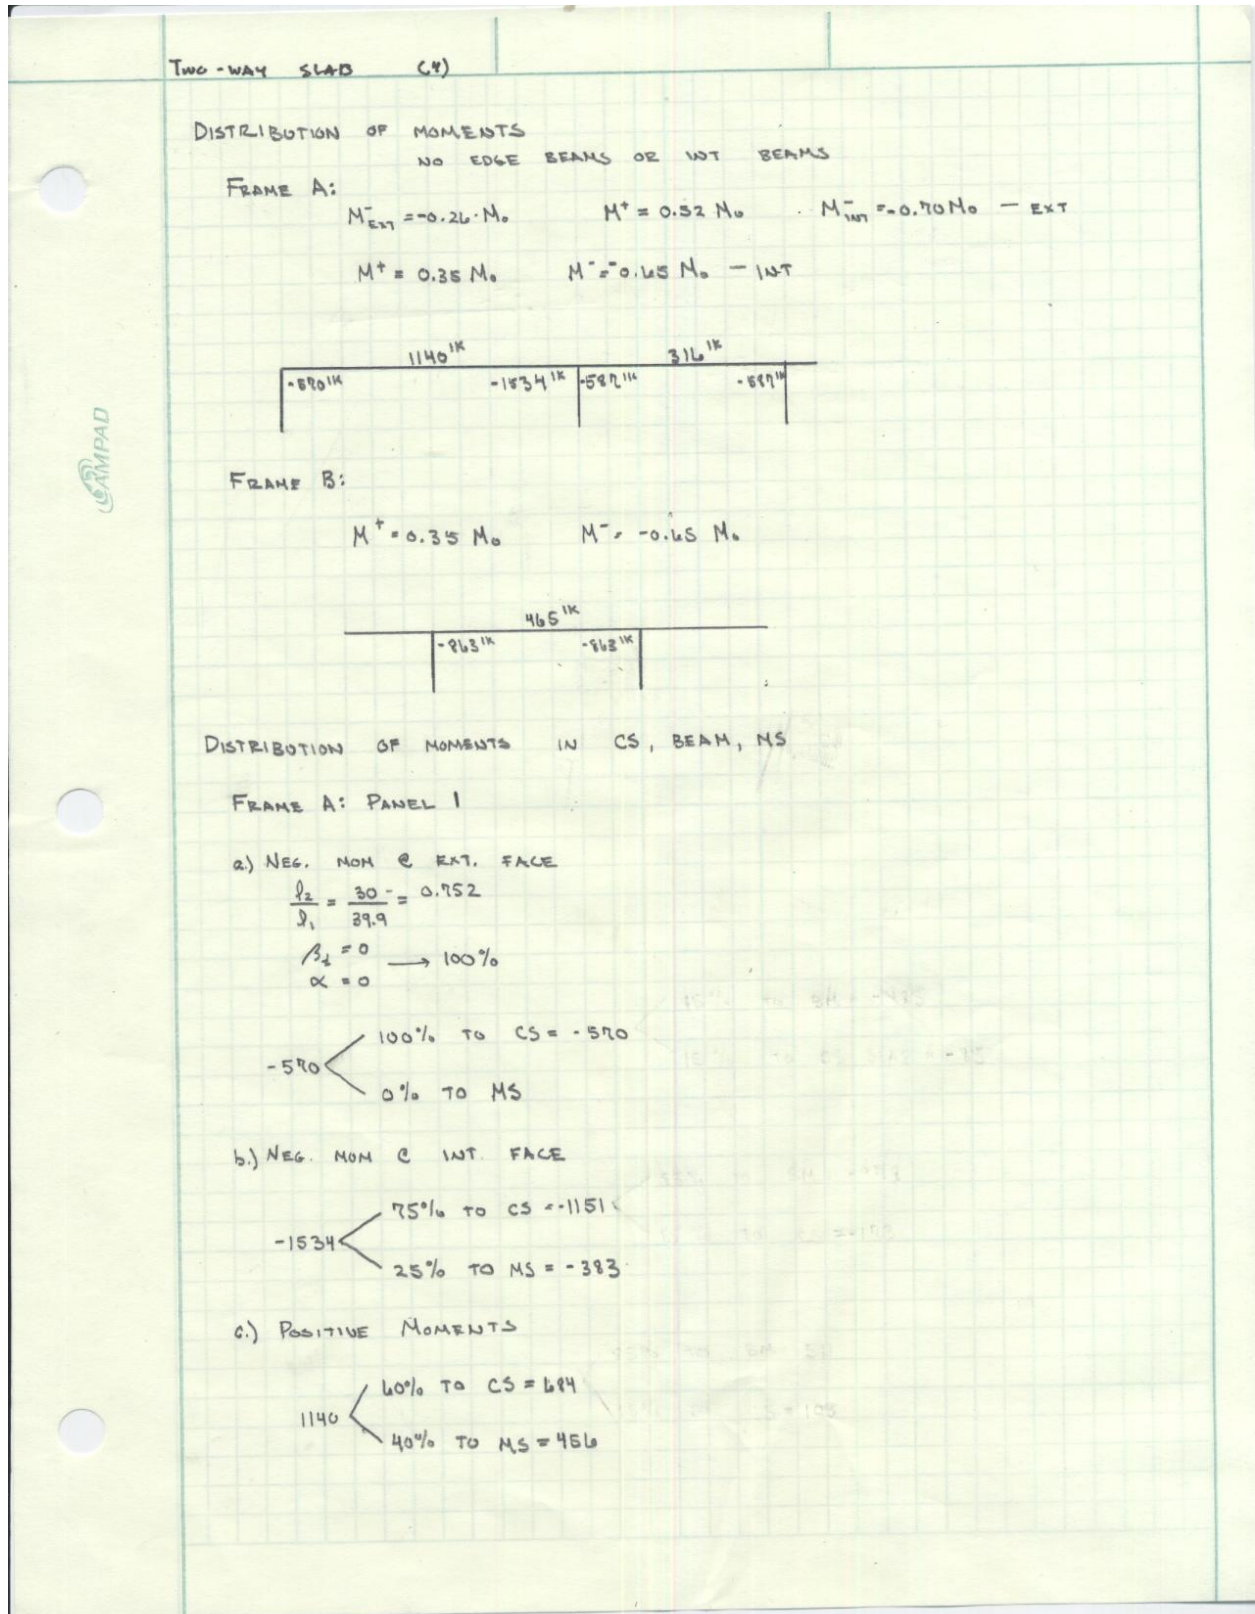 TWO-WAY SLAB (4)
DISTRIBUTION OF MOMENTS
NO EDGE BEAMS OR INT BEAMS
FRAME A:
M⁻EXT = -0.26·M₀ M⁺ = 0.52 M₀ M⁻INT = -0.70 M₀ — EXT
M⁺ = 0.35 M₀ M⁻ = -0.65 M₀ — INT
1140'K 316'K
-570'K -1534'K -587'K -587'K
AMPAD
FRAME B:
M⁺ = 0.35 M₀ M⁻ = -0.65 M₀
465'K
-863'K -863'K
DISTRIBUTION OF MOMENTS IN CS, BEAM, MS
FRAME A: PANEL 1
a.) NEG. MOM @ EXT. FACE
l₂/l₁ = 30/39.9 = 0.752
βt = 0
α = 0 → 100%
100% TO CS = -570
-570
0% TO MS
b.) NEG. MOM @ INT. FACE
75% TO CS = -1151
-1534
25% TO MS = -383
c.) POSITIVE MOMENTS
60% TO CS = 684
1140
40% TO MS = 456